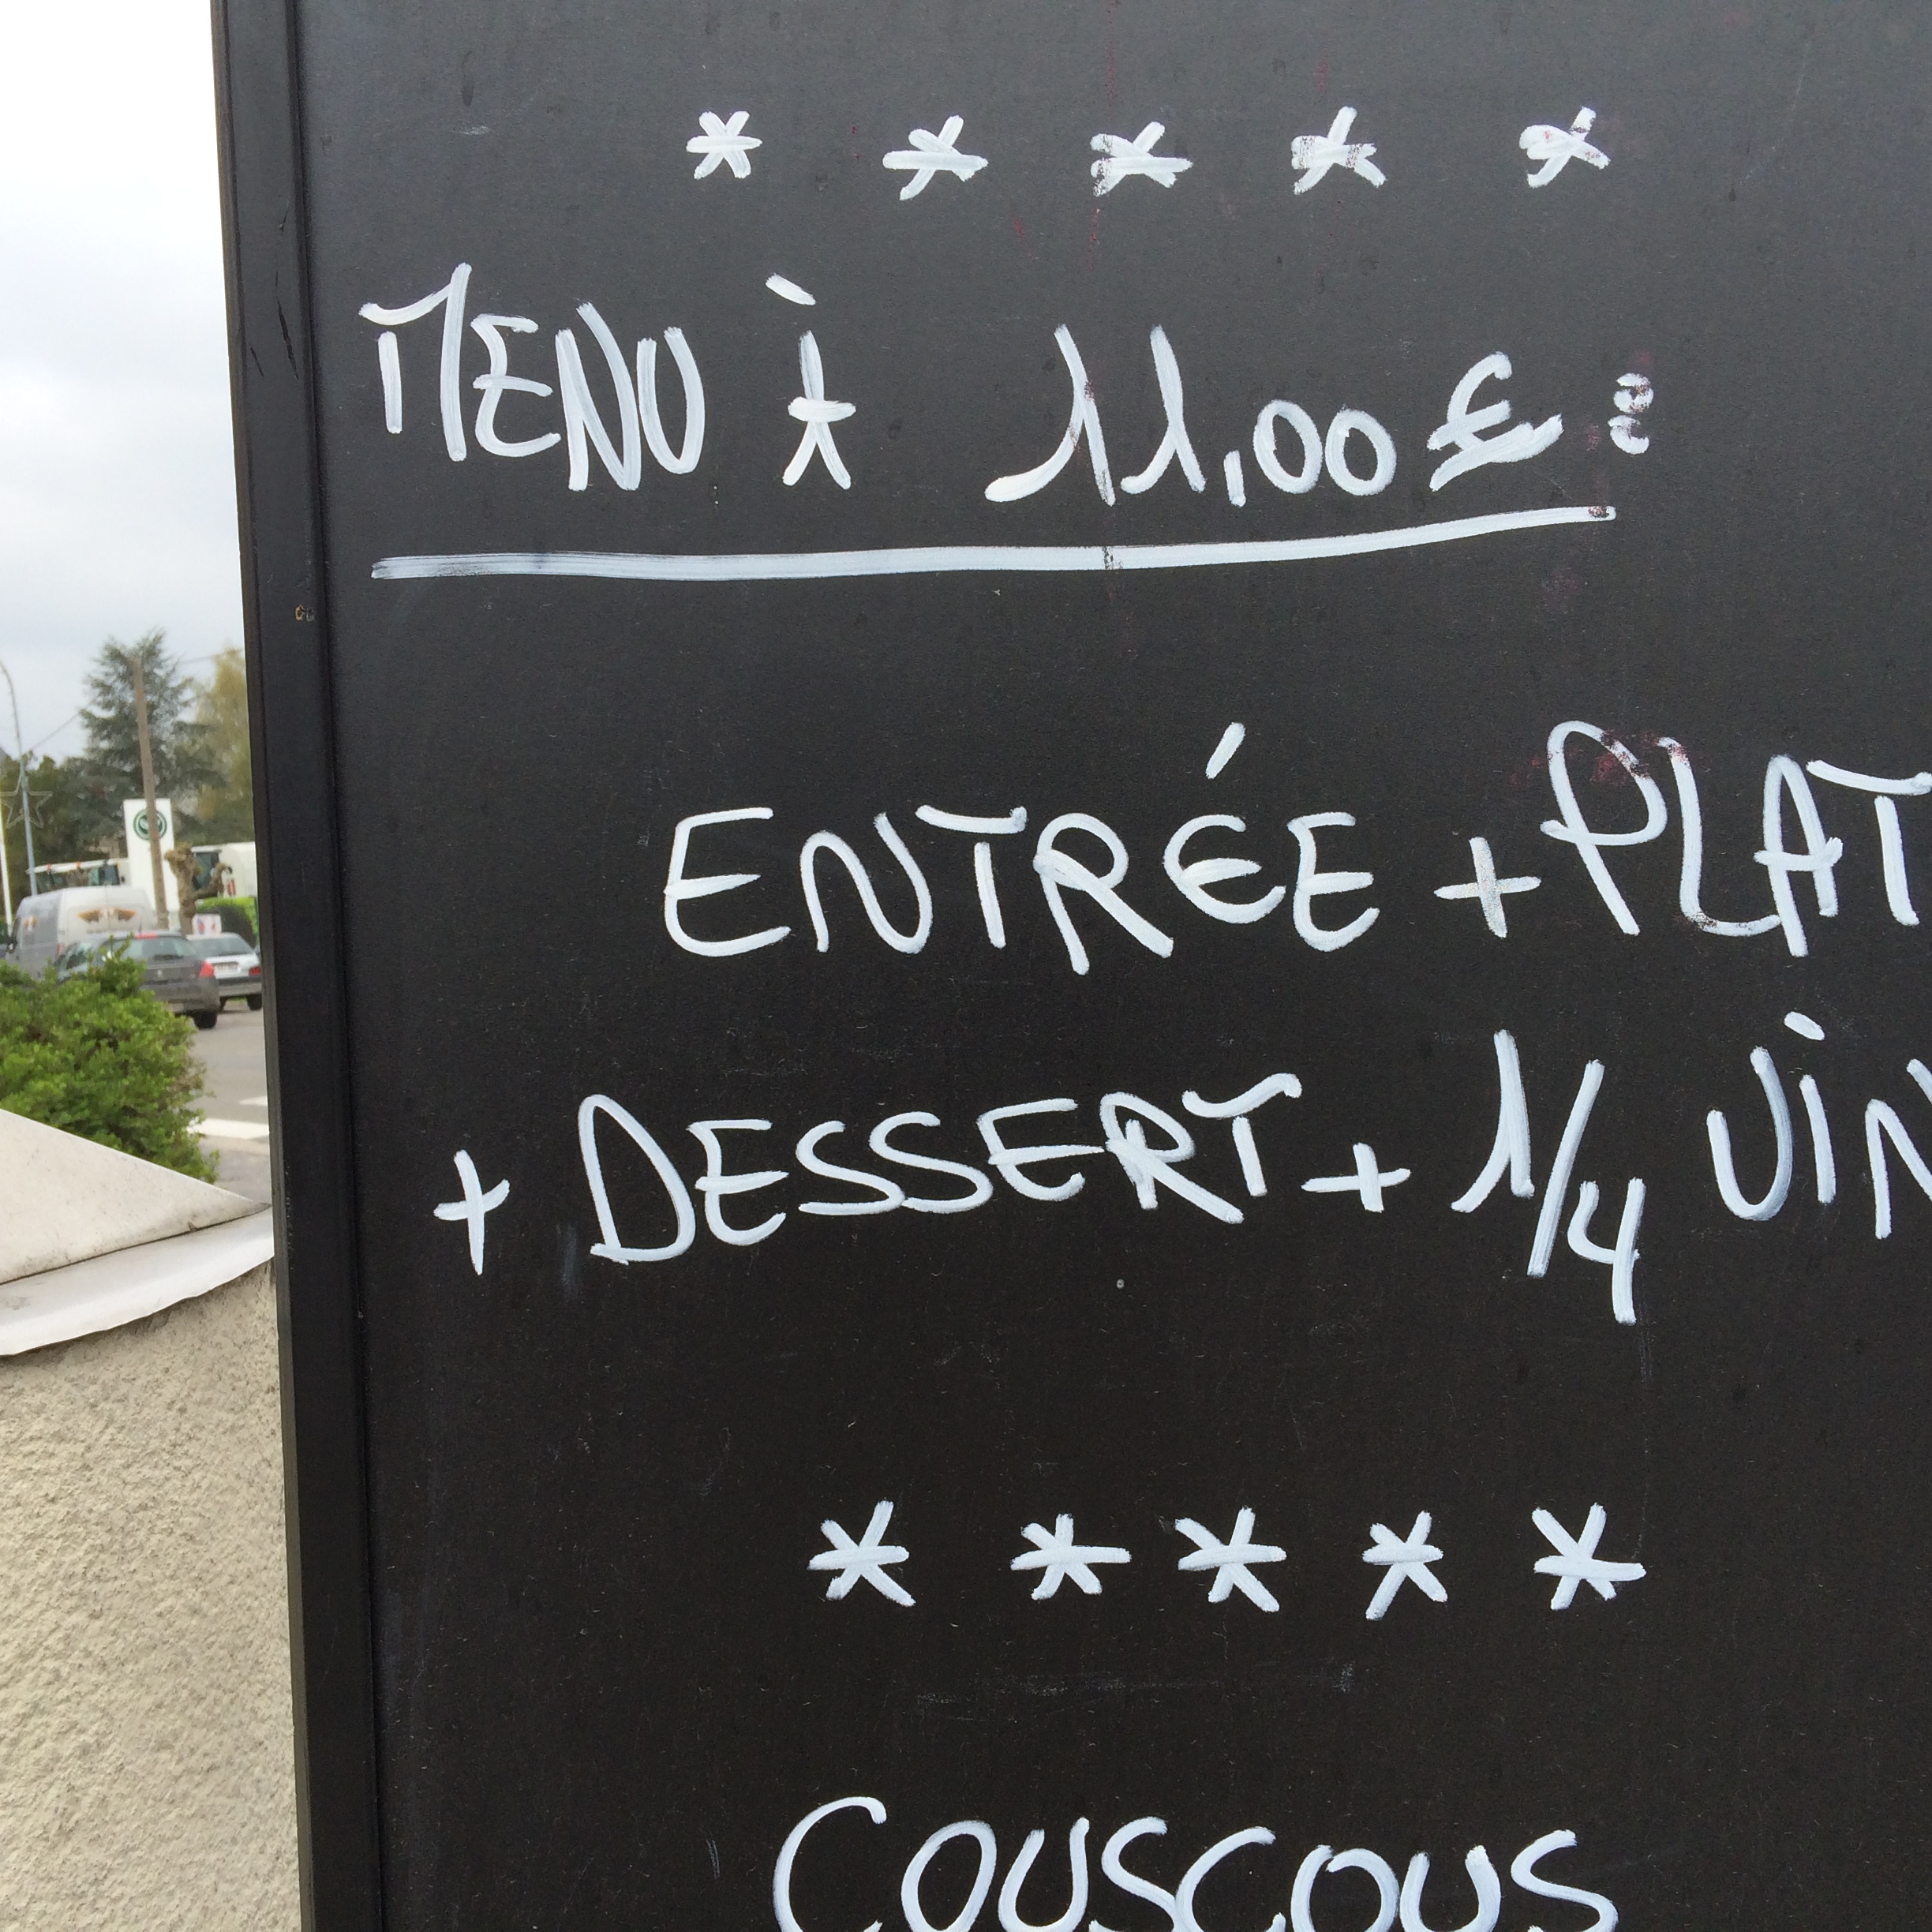 * * * * *
MENU À 11,00 € :
ENTRÉE + PLAT
+ DESSERT + 1/4 VIN
* * * * *
COUSCOUS